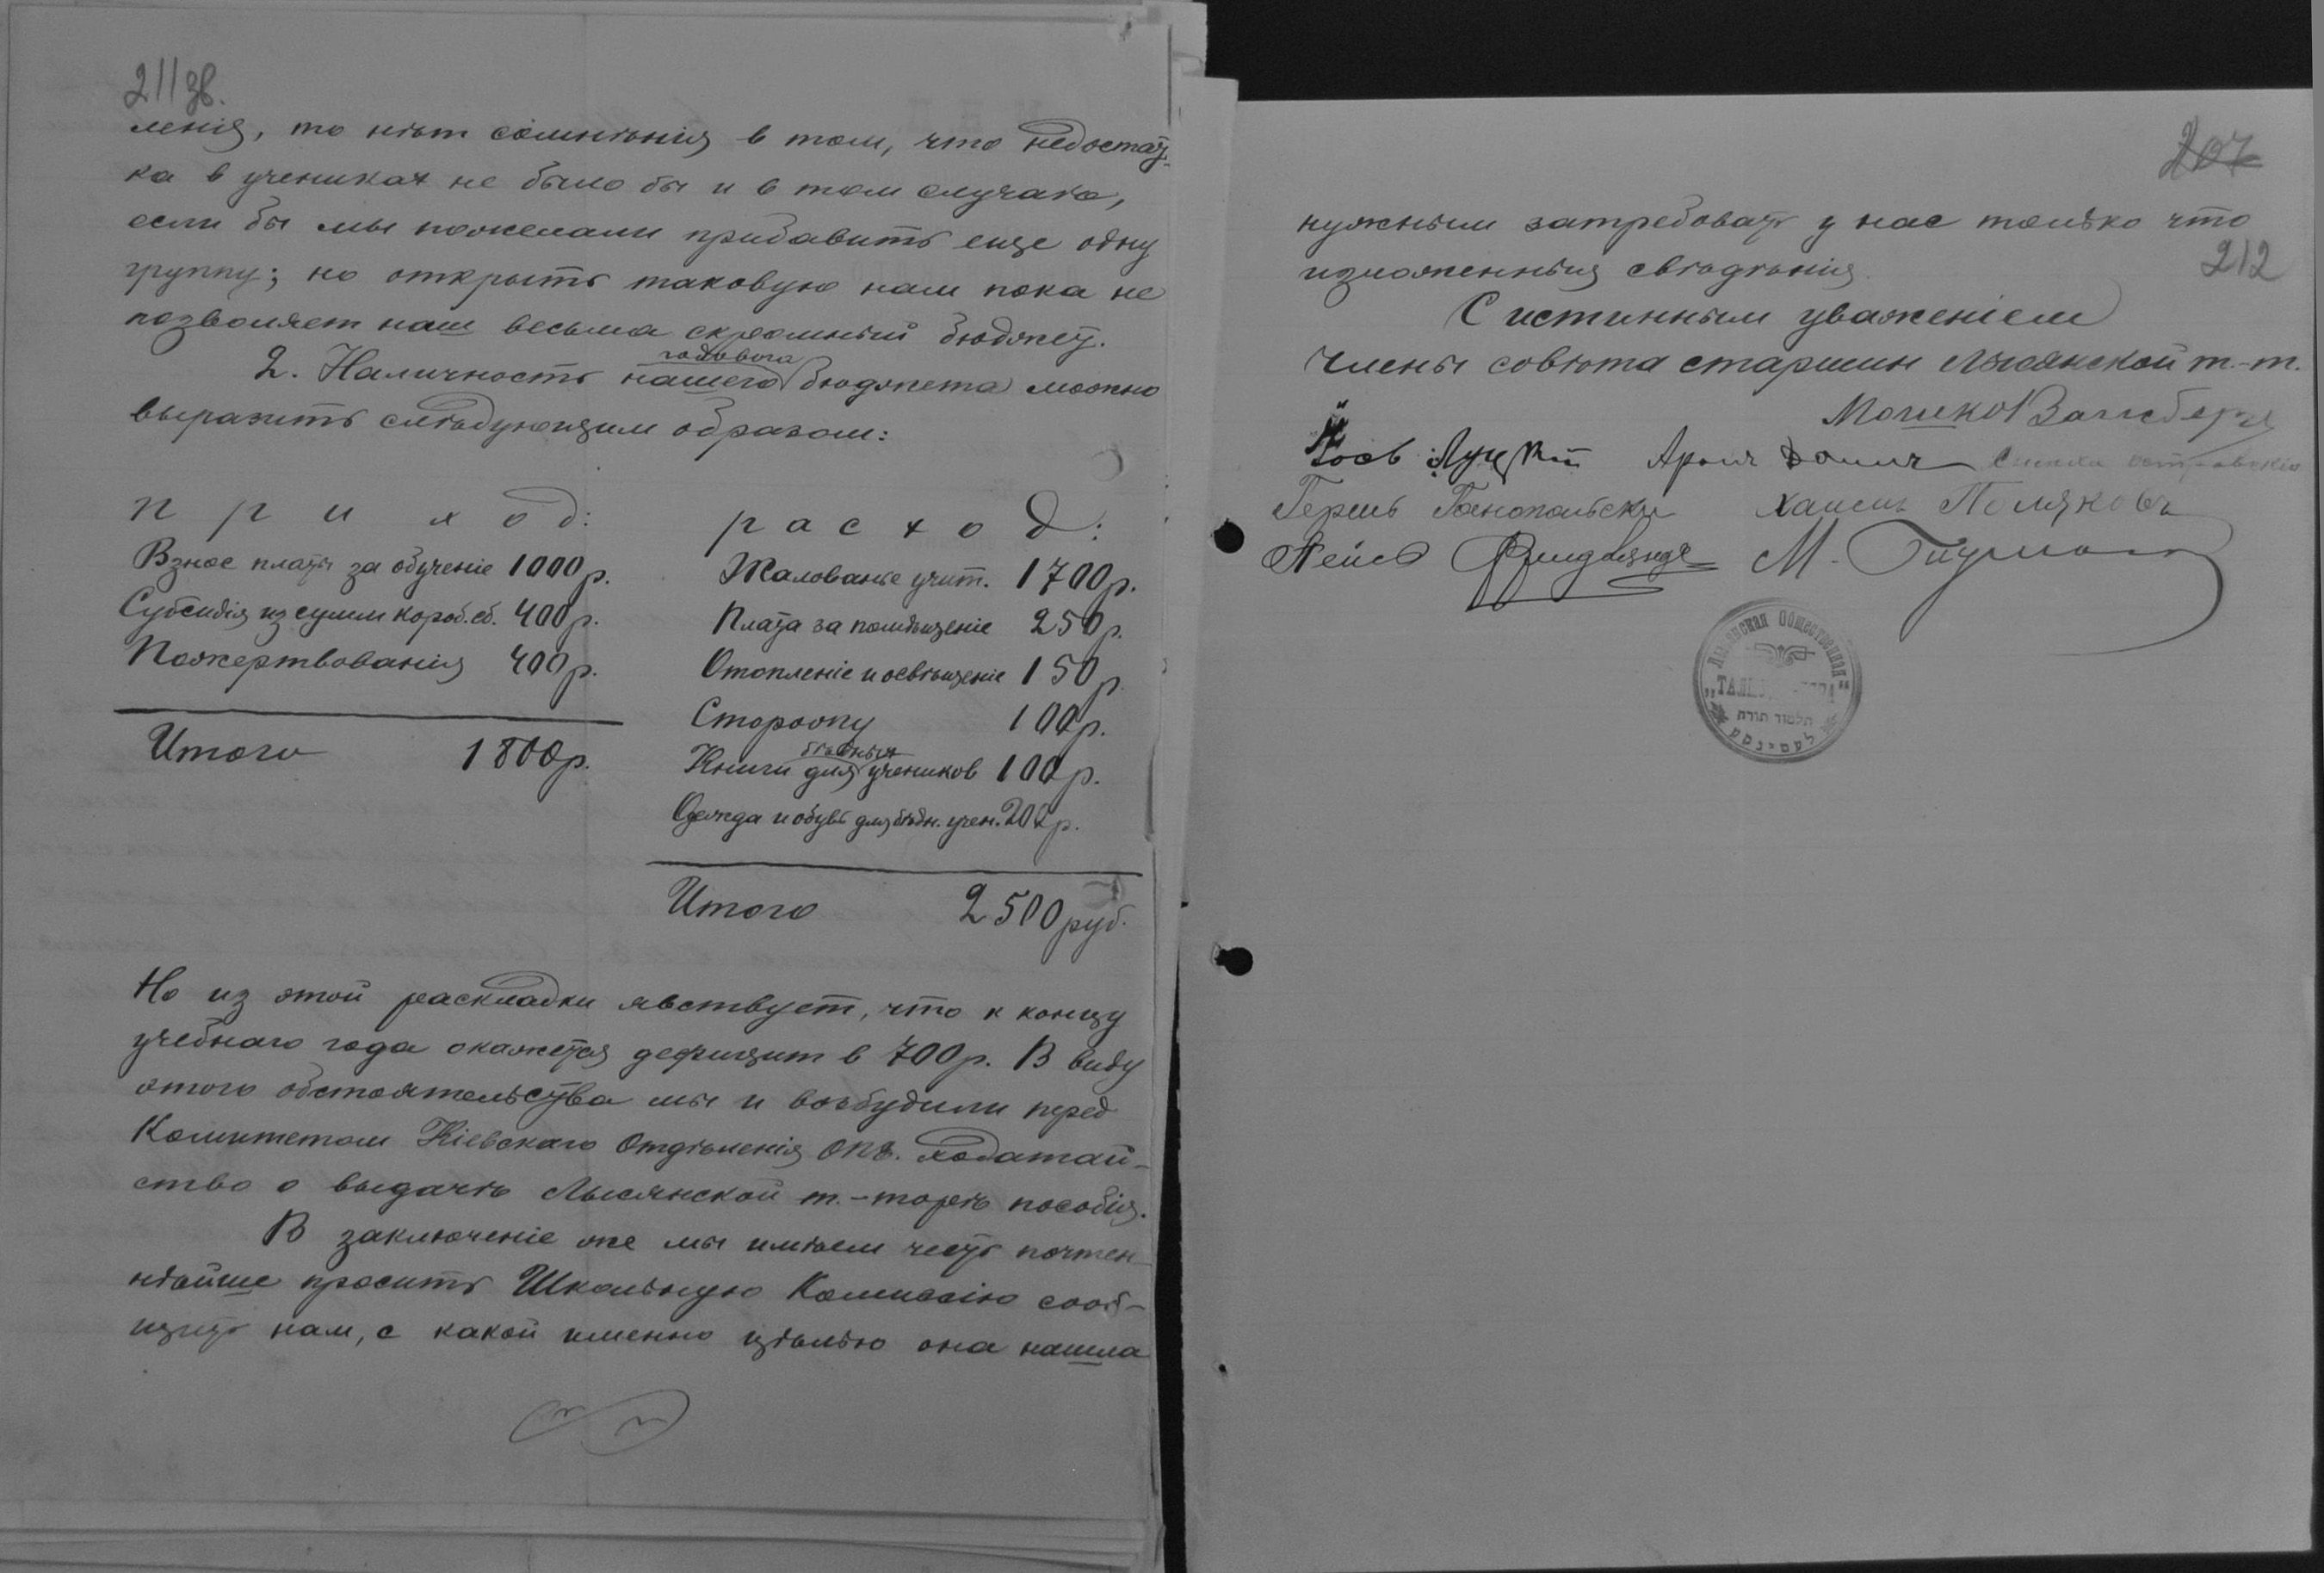 211 зв.
ленія, то нѣт сомнѣнія в том, что недостат-
ка в учениках не было бы и в том случаѣ,
если бы мы пожелали прибавить еще одну
группу; но открыть таковую нам пока не
позволяет наш весьма скромный бюджет.
2. Наличность нашего годового бюджета можно
выразить слѣдующим образом:
приход:
Взнос платы за обученіе 1000 р.
Субсидія из сумм короб. сб. 400 р.
Пожертвованія 400 р.
Итого 1800 р.
расход:
Жалованье учит. 1700 р.
Плата за помѣщеніе 250 р.
Отопленіе и освѣщеніе 150 р.
Сторожу 100 р.
Книги для бѣдных учеников 100 р.
Одежда и обувь для бѣдн. учен. 200 р.
Итого 2500 руб.
Но из этой раскладки явствует, что к концу
учебнаго года окажется дефицит в 700 р. В виду
этого обстоятельства мы и возбудили перед
Комитетом Кіевскаго Отдѣленія ОПЕ. ходатай-
ство о выдачѣ Лысянской т.-торѣ пособія.
В заключеніе же мы имѣем честь почтен-
нѣйше просить Школьную Комиссію сооб-
щить нам, с какой именно цѣлью она нашла
207
212
нужным затребовать у нас только что
изложенныя свѣдѣнія.
С истинным уваженіем
Члены совѣта старшин Лысянской т.-т.
Мошко Вайсберг
Арон
Герш Хаим Поляковъ
М.
Лысянская Общественная
"ТАЛМУД-ТОРА"
תלמוד תורה